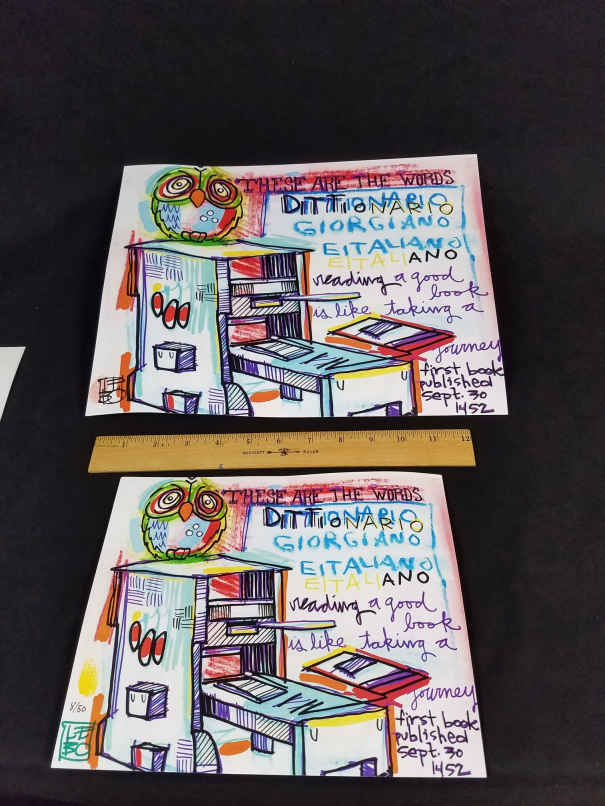 THESE ARE THE WORDS
DITTIONARIO
GIORGIANO
EITALIANO
EITALIANO
reading a good
book
is like taking a
journey
first book
published
sept. 30
1452
LE
BO
1 2 3 4 5 6 7 8 9 10 11 12
THESE ARE THE WORDS
DITTIONARIO
GIORGIANO
EITALIANO
EITALIANO
reading a good
book
is like taking a
journey
first book
published
sept. 30
1452
LE
BO